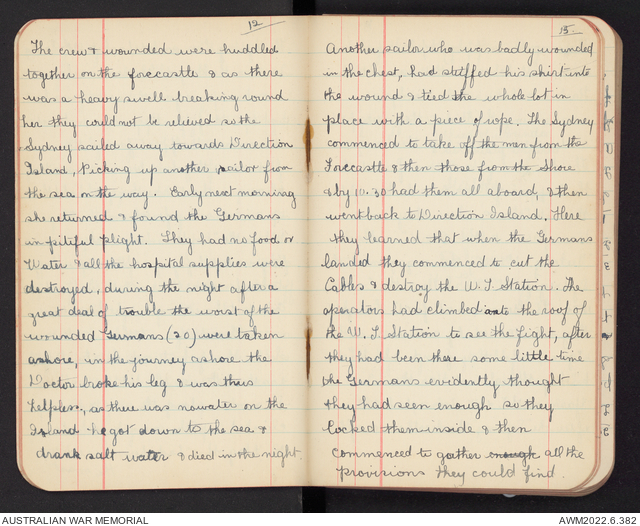 12
The crew & wounded were huddled
together on the forecastle & as there
was a heavy swell breaking round
her they could not be relieved so the
Sydney sailed away towards Direction
Island, Picking up another sailor from
the sea on the way. Early next morning
she returned & found the Germans
in pitiful plight. They had no food or
Water & all the hospital supplies were
destroyed, during the night after a
great deal of trouble the worst of the
wounded Germans (20) were taken
ashore, in the journey ashore the
Doctor broke his leg & was thus
helpless, as there was no water on the
Island he got down to the sea &
drank salt water & died in the night.
13
Another sailor who was badly wounded
in the chest, had stuffed his shirt into
the wound & tied the whole lot in
place with a piece of rope. The Sydney
commenced to take off the men from the
Forecastle & then those from the Shore
& by 10.30 had them all aboard, & then
went back to Direction Island. Here
they learned that when the Germans
landed they commenced to cut the
Cables & destroy the W.T. Station. The
operators had climbed onto the roof of
the W.T. Station to see the fight, after
they had been there some little time
the Germans evidently thought
they had seen enough so they
locked them inside & then
commenced to gather enough all the
provisions they could find.
AUSTRALIAN WAR MEMORIAL
AWM2022.6.382